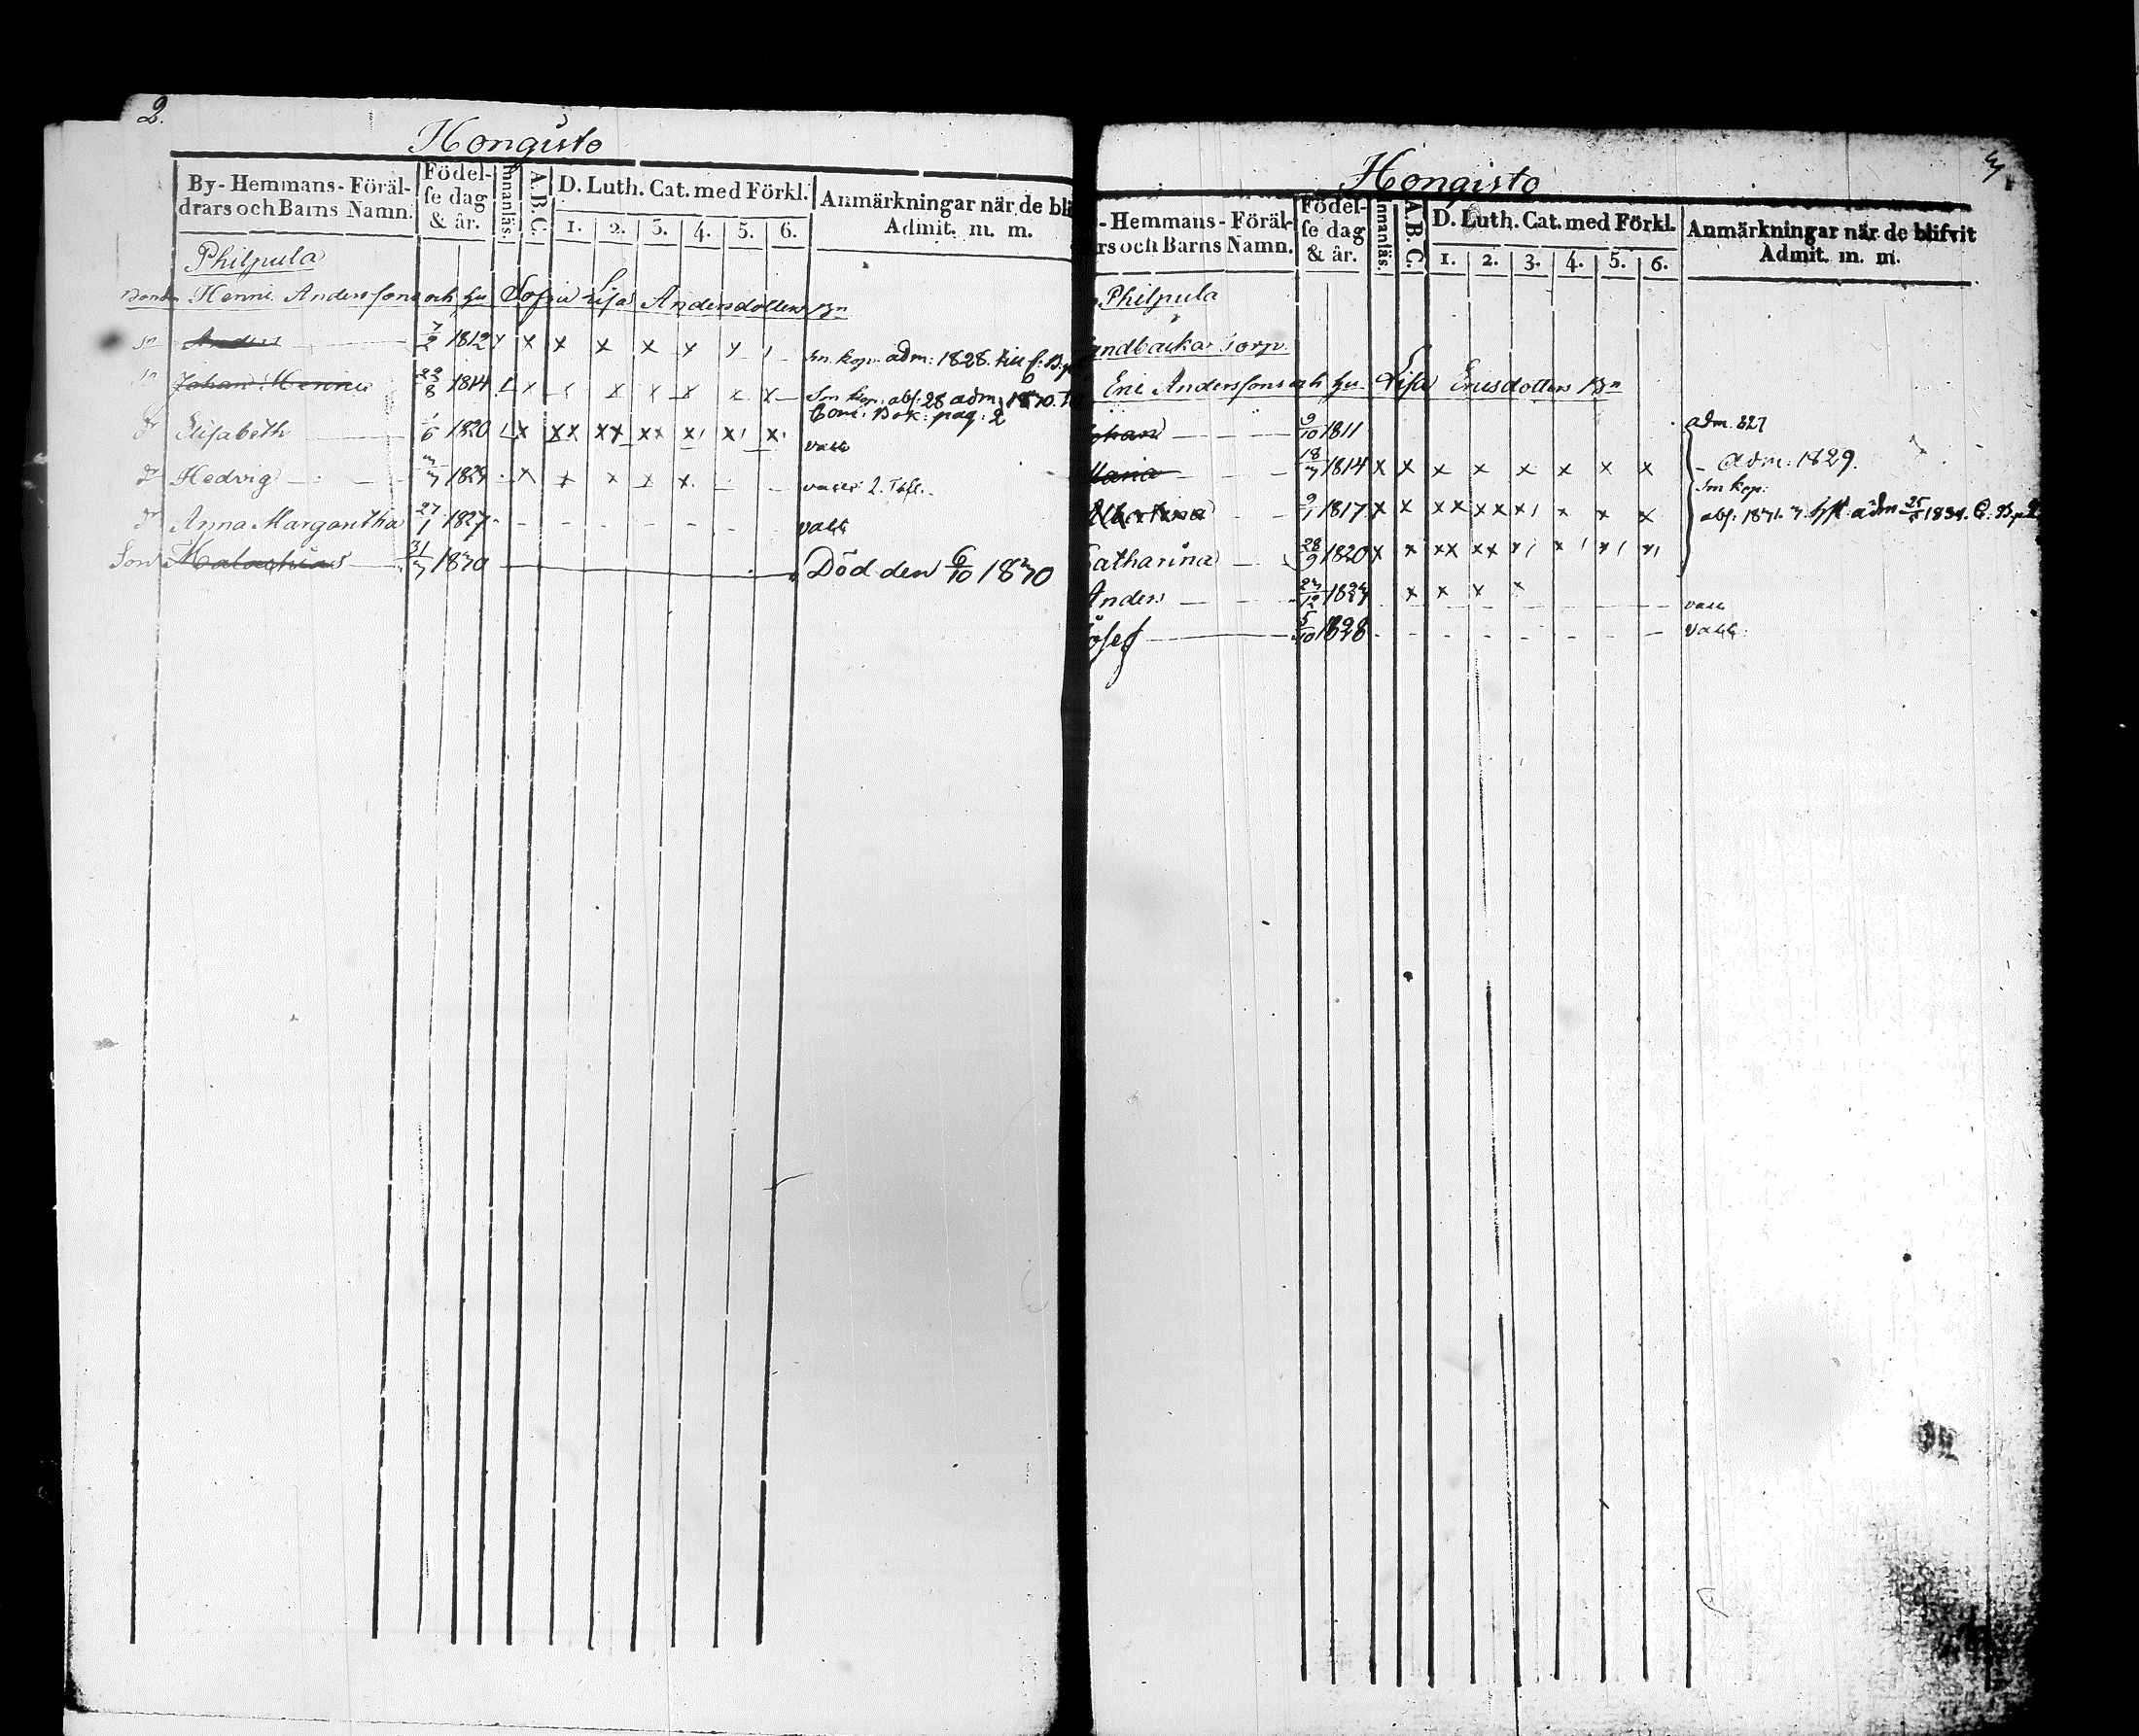 2.
Hongisto
By-Hemmans-Föräl-
drars och Barns Namn.
Födel-
se dag
& år.
Innanläs.
A.B.C.
D. Luth. Cat. med Förkl.
1. 2. 3. 4. 5. 6.
Anmärkningar när de bli
Admit. m. m.
Philpula
Bonden Henric Anderssons och hu Sofia Lisa Andersdotters Bn
sn Anders 7/2 1812 x x x x x
Sn kop. adm: 1828. till C: B: p
sn Johan Henric 22/8 1814 L x x x x x x
Sn kop. abs: 28 adm 1830.
Com: Bok: pag: 2
dr Elisabeth 1/6 1820 L x xx xx xx x x x
vacc
dr Hedvig x x x x x
vacc: 2.
dr Anna Margaretha 27/1 1827
vacc
Son 31/3 1830
Död den 6/10 1830
3.
Hongisto
-Hemmans-Föräl-
rs och Barns Namn.
Födel-
se dag
& år.
Innanläs.
A.B.C.
D. Luth. Cat. med Förkl.
1. 2. 3. 4. 5. 6.
Anmärkningar när de blifvit
Admit. m. m.
Philpula
andbacka Torp.
Eric Anderssons och hu Lisa Ericsdotters Bn
Johan 9/10 1811
adm. 827
Maria 18/3 1814 x x x x x x x x
adm: 1829.
Sn kop:
Albertina 9/1 1817 x x xx xx x x x x
abs: 1831. adm 25/5 1834. C: B: p 2
Catharina 28/9 1820 x x xx xx x x x x
Anders 23/12 x x x x
vacc
Josef 5/10 1828
vacc: